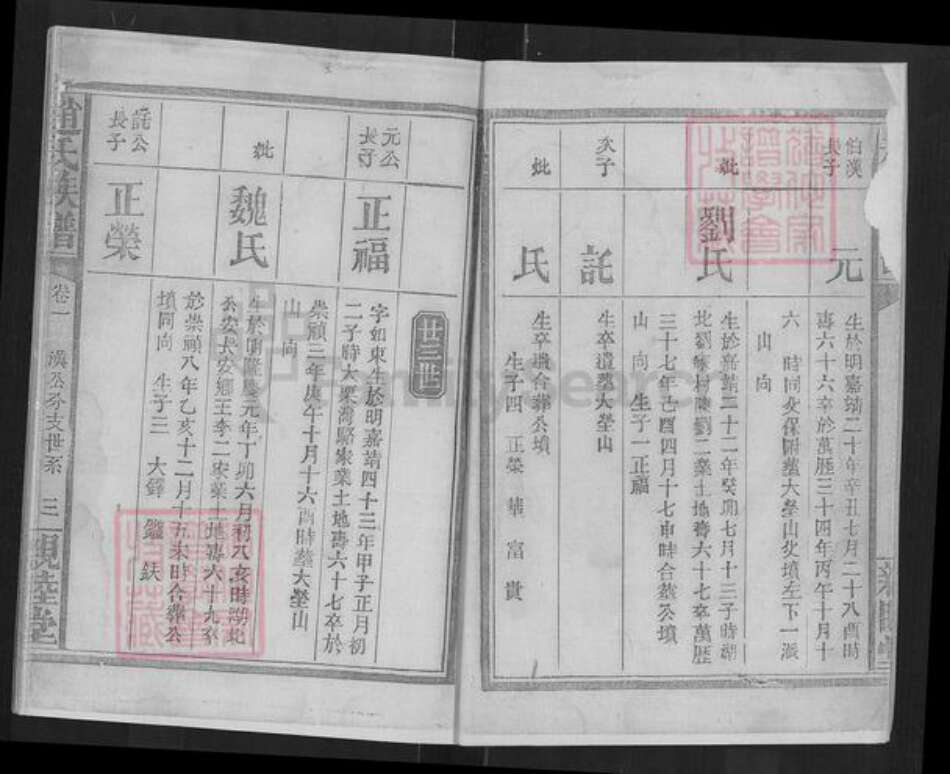 伯漢長子
元
生於明嘉靖二十年辛丑七月二十八酉時
壽六十六卒於萬歷三十四年丙午十月十
六 時同父保附塟大塋山父墳左下一派
山 向
妣
劉氏
生於嘉靖二十二年癸卯七月十三子時湖
北劉家村陳劉二業土地壽六十七卒萬歷
三十七年己酉四月十七申時合塟公墳
山 向 生子一正福
次子
託
生卒遺塟大塋山
妣
氏
生卒遺合葬公墳
生子四 正榮 華 富 貴
廿三世
元公長子
正福
字如東生於明嘉靖四十三年甲子正月初
二子時大栗灣駱家業土地壽六十七卒於
崇禎三年庚午十月十六酉時塟大塋山
山 向
妣
魏氏
生於明隆慶元年丁卯六月初八亥時湖北
公安長安鄉王李二家業土地壽六十九卒
於崇禎八年乙亥十二月十五未時合葬公
墳同向 生子三 大鐸 鑑 鈇
託公長子
正榮
趙氏族譜
卷一
漢公分支世系
三
親睦堂